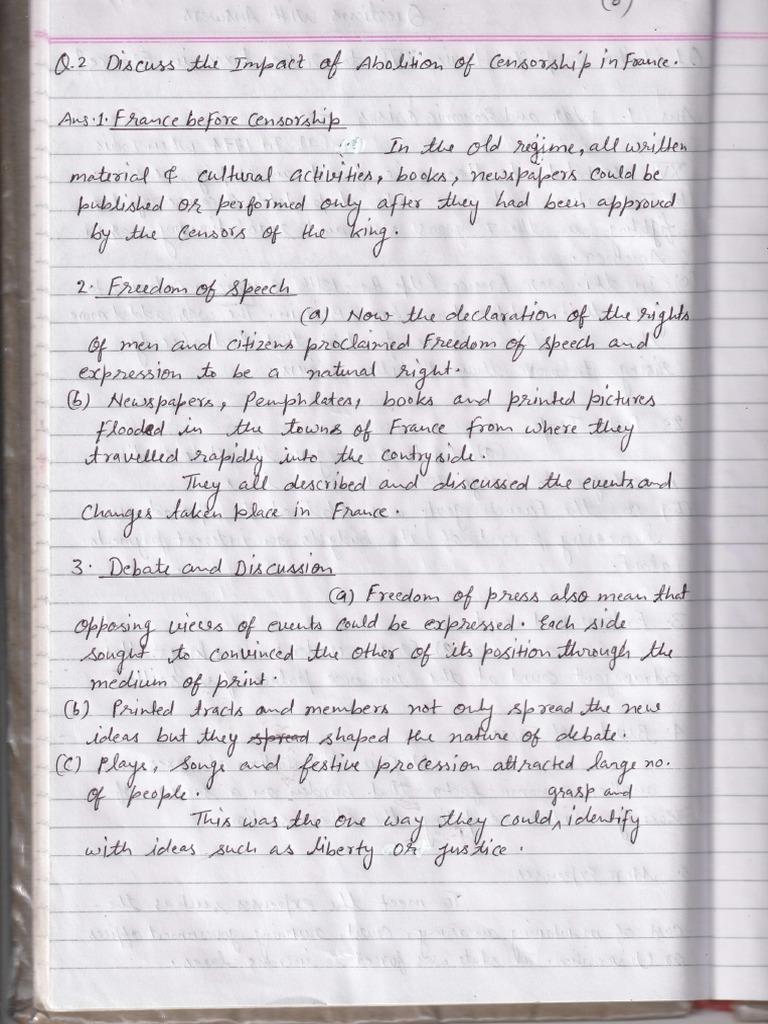 (8)
Q.2 Discuss the Impact of Abolition of Censorship in France.
Ans.1. France before Censorship
In the old regime, all written
material & cultural activities, books, newspapers could be
published or performed only after they had been approved
by the Censors of the king.
2. Freedom of speech
(a) Now the declaration of the rights
of men and citizens proclaimed Freedom of speech and
expression to be a natural right.
(b) Newspapers, Pemphlates, books and printed pictures
flooded in the towns of France from where they
travelled rapidly into the contryside.
They all described and discussed the events and
Changes taken place in France.
3. Debate and Discussion
(a) Freedom of press also mean that
opposing views of events could be expressed. Each side
sought to convinced the other of its position through the
medium of print.
(b) Printed tracts and members not only spread the new
ideas but they spread shaped the nature of debate.
(c) Plays, songs and festive procession attracted large no.
of people.
grasp and
This was the one way they could, identify
with ideas such as liberty or justice.